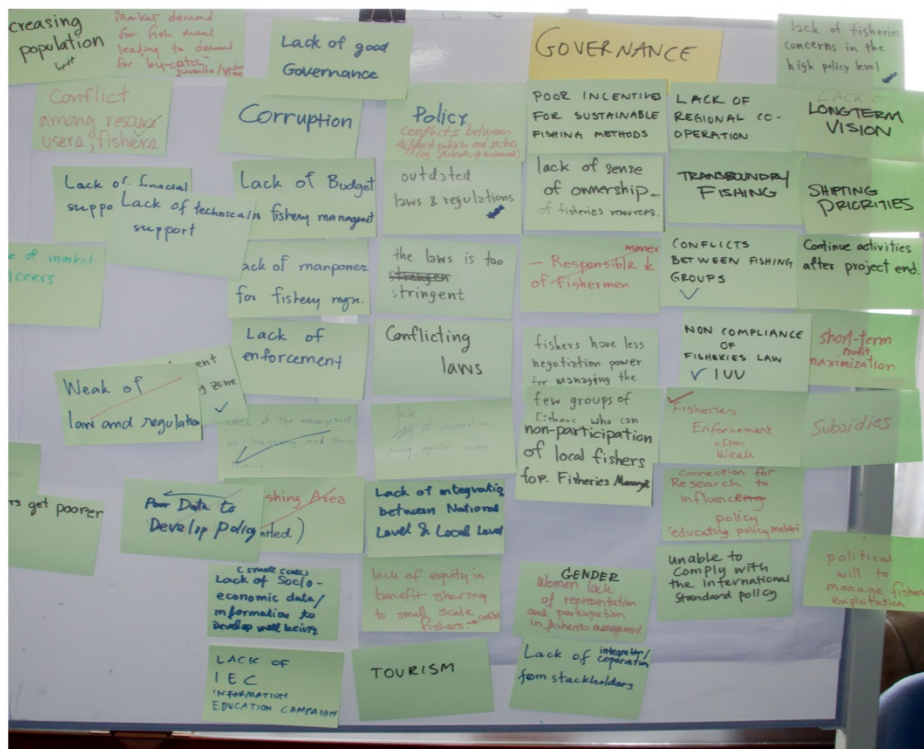 creasing
population
Market demand
for fish meal
leading to demand
for "by-catch,
Lack of good
Governance
GOVERNANCE
lack of fisheries
concerns in the
high policy level
Conflict
among
users, fishers
Corruption
Policy
Conflicts between
different policies and sectors
POOR INCENTIVES
FOR SUSTAINABLE
FISHING METHODS
LACK OF
REGIONAL CO-
OPERATION
LONGTERM
VISION
Lack of financial
suppo
Lack of technical
support
Lack of Budget
in fishery managent
outdated
laws & regulations
lack of sense
of ownership
of fisheries resources.
TRANSBOUNDRY
FISHING
SHIFTING
PRIORITIES
e of market
ack of manpower
for fishery
the laws is too
stringent
manner
— Responsible
of Fishermen
CONFLICTS
BETWEEN FISHING
GROUPS
Continue activities
after project end.
Lack of
enforcement
Conflicting
laws
fishers have less
negotiation power
for managing the
NON COMPLIANCE
OF
FISHERIES LAW
IUU
short-term
Profit
maximization
Weak of
law and regulation
ent
g zone
few groups of
who can
non-participation
of local fishers
for Fisheries
Fisheries
Enforcement
often
Weak
Subsidies
rs get poorer
Poor Data to
Develop Policy
shing Area
Lack of
between National
Level & Local Level
Connection for
Research to
policy
"educating policy makers
(small scale)
Lack of Socio-
economic data/
information to
develop well being
lack of equity in
benefit sharing
to small scale
fishers.
GENDER
Women lack
of representation
and participation
in fisheries management
unable to
comply with
the International
Standard policy
political
will to
manage
exploitation
LACK OF
IEC
INFORMATION
EDUCATION CAMPAIGN
TOURISM
Lack of
from stackholders